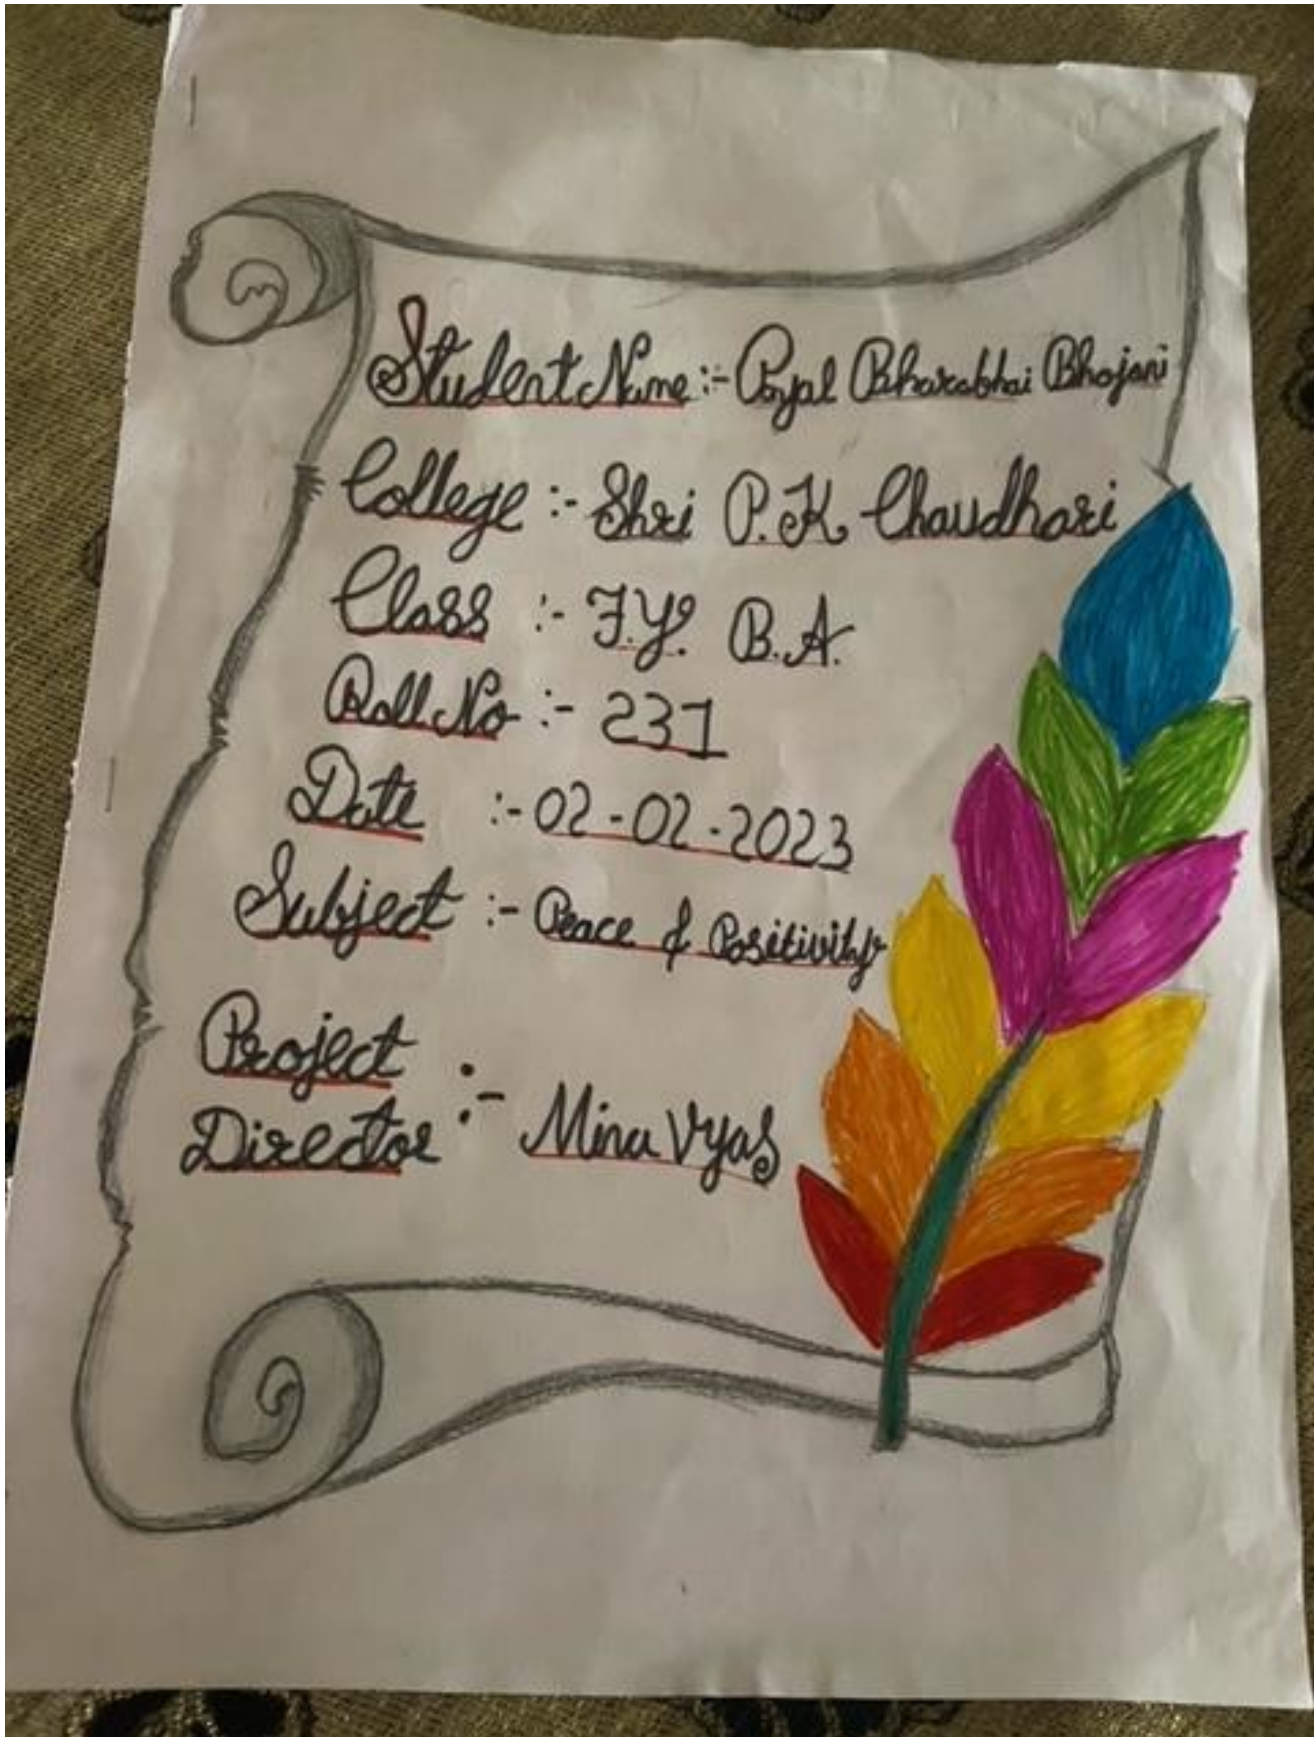 Student Name :- Payal Bharabhai Bhojani
College :- Shri P.K. Chaudhari
Class :- F.Y. B.A.
Roll No :- 231
Date :- 02-02-2023
Subject :- Peace & Positivity
Project
Director :- Mina Vyas